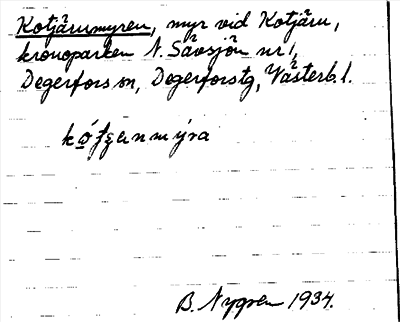 Kotjärnmyren, myr vid Kotjärn,
kronoparken N. Sävsjön nr 1,
Degerfors sn, Degerforstg, Västerb. l.
B. Nygren 1934.